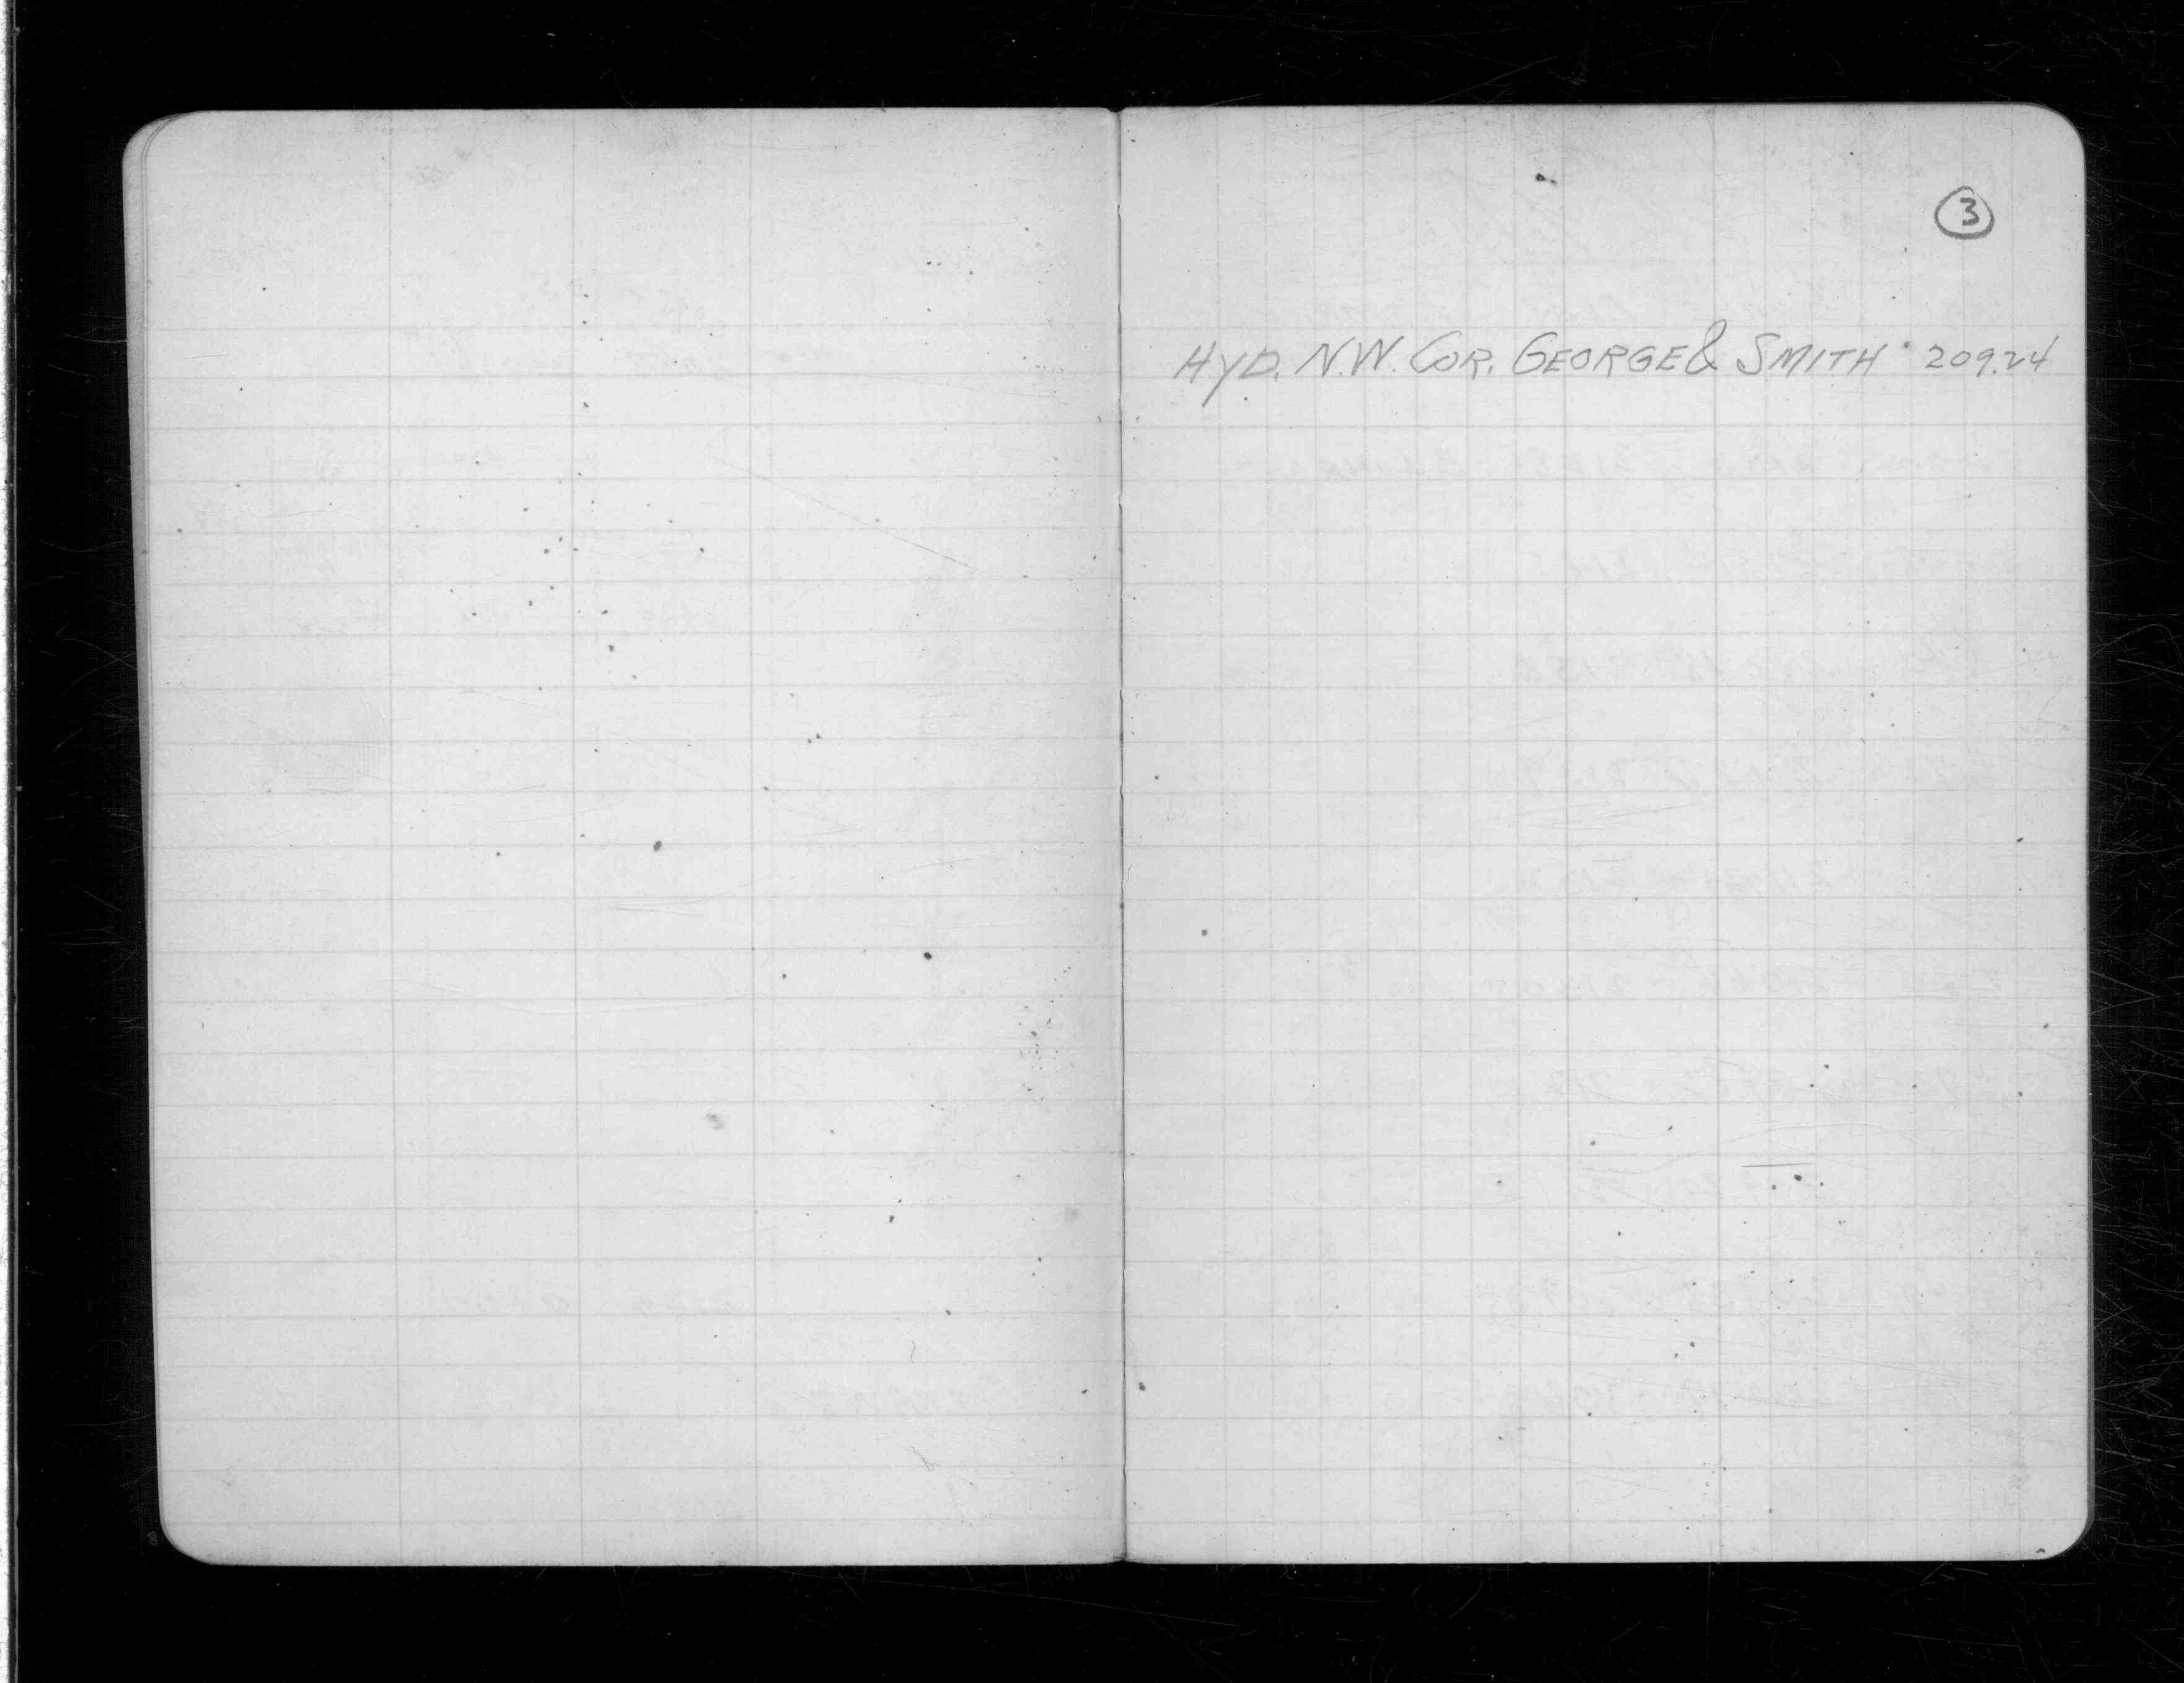 3
HYD. N.W. COR. GEORGE & SMITH 209.24